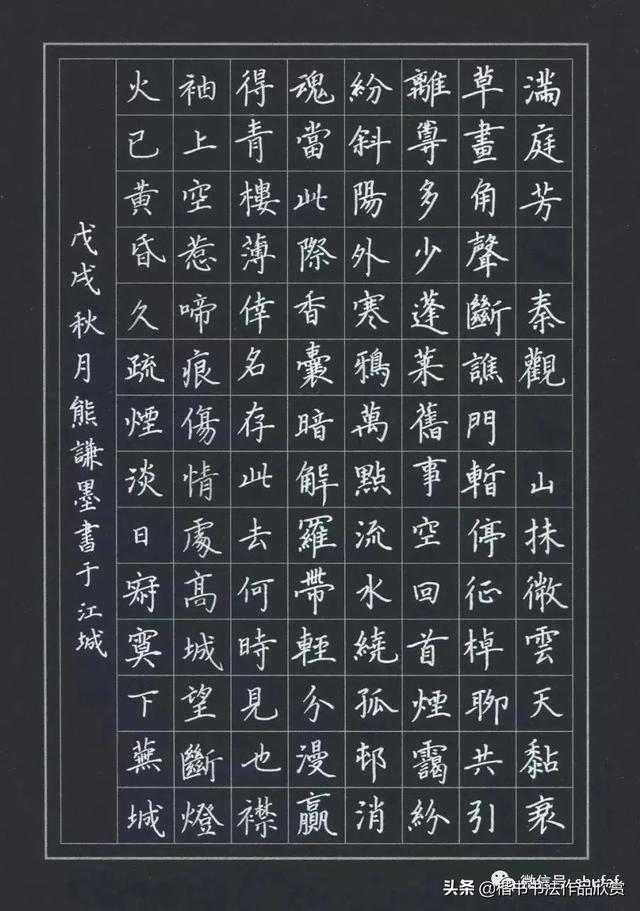 滿庭芳 秦觀 山抹微雲天黏衰
草畫角聲斷譙門暫停征棹聊共引
離尊多少蓬萊舊事空回首煙靄紛
紛斜陽外寒鴉萬點流水繞孤邨消
魂當此際香囊暗解羅帶輕分漫贏
得青樓薄倖名存此去何時見也襟
袖上空惹啼痕傷情處高城望斷燈
火已黃昏久疏煙淡日寂寞下蕪城
戊戌秋月熊謙墨書于江城
微信号: shufaf
头条 @楷书书法作品欣赏